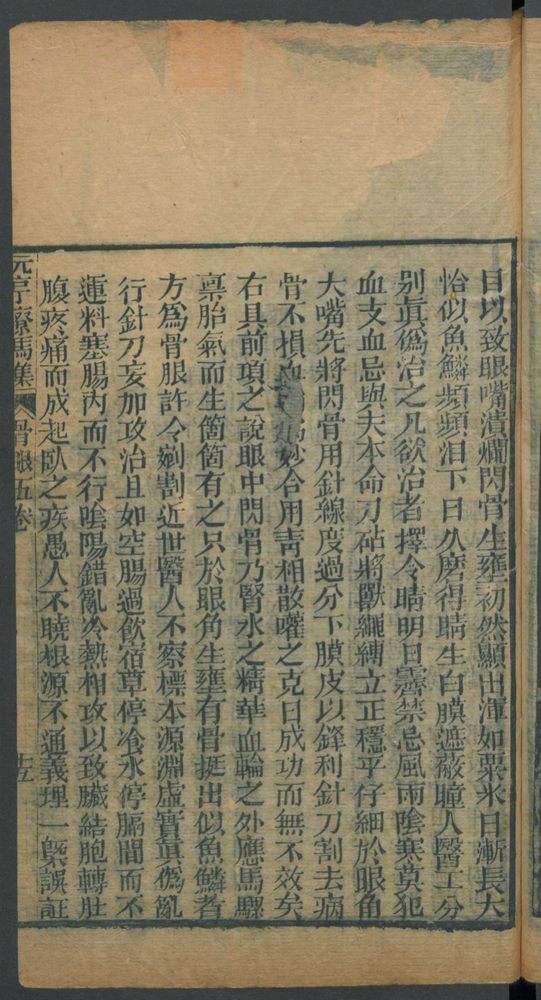 日以致眼嘴潰爛閃骨生壅初然顯出渾如粟米日漸長大
恰似魚鱗頻頻泪下日久磨得睛生白膜遮蔽瞳人醫工分
别眞僞治之凡欲治者擇令晴明日霽禁忌風雨陰寒莫犯
血支血忌與夫本命刀砧將獸繩縛立正穩平仔細於眼角
大嘴先將閃骨用針線度過分下膜皮以鋒利針刀割去病
骨不損血 爲妙合用青相散嚾之克日成功而無不效矣
右具前項之說眼中閃骨乃腎水之精華血輪之外應馬騾
禀胎氣而生箇箇有之只於眼角生壅有骨挺出似魚鱗者
方爲骨眼許令剜割近世醫人不察標本源淵虛實眞僞亂
行針刀妄加攻治且如空腸過飲宿草停冷水停膈間而不
運料塞腸内而不行陰陽錯亂冷熱相攻以致臟結胞轉肚
腹疼痛而成起臥之疾愚人不曉根源不通義理一槩誤証
元亨療馬集 骨眼五卷 十五